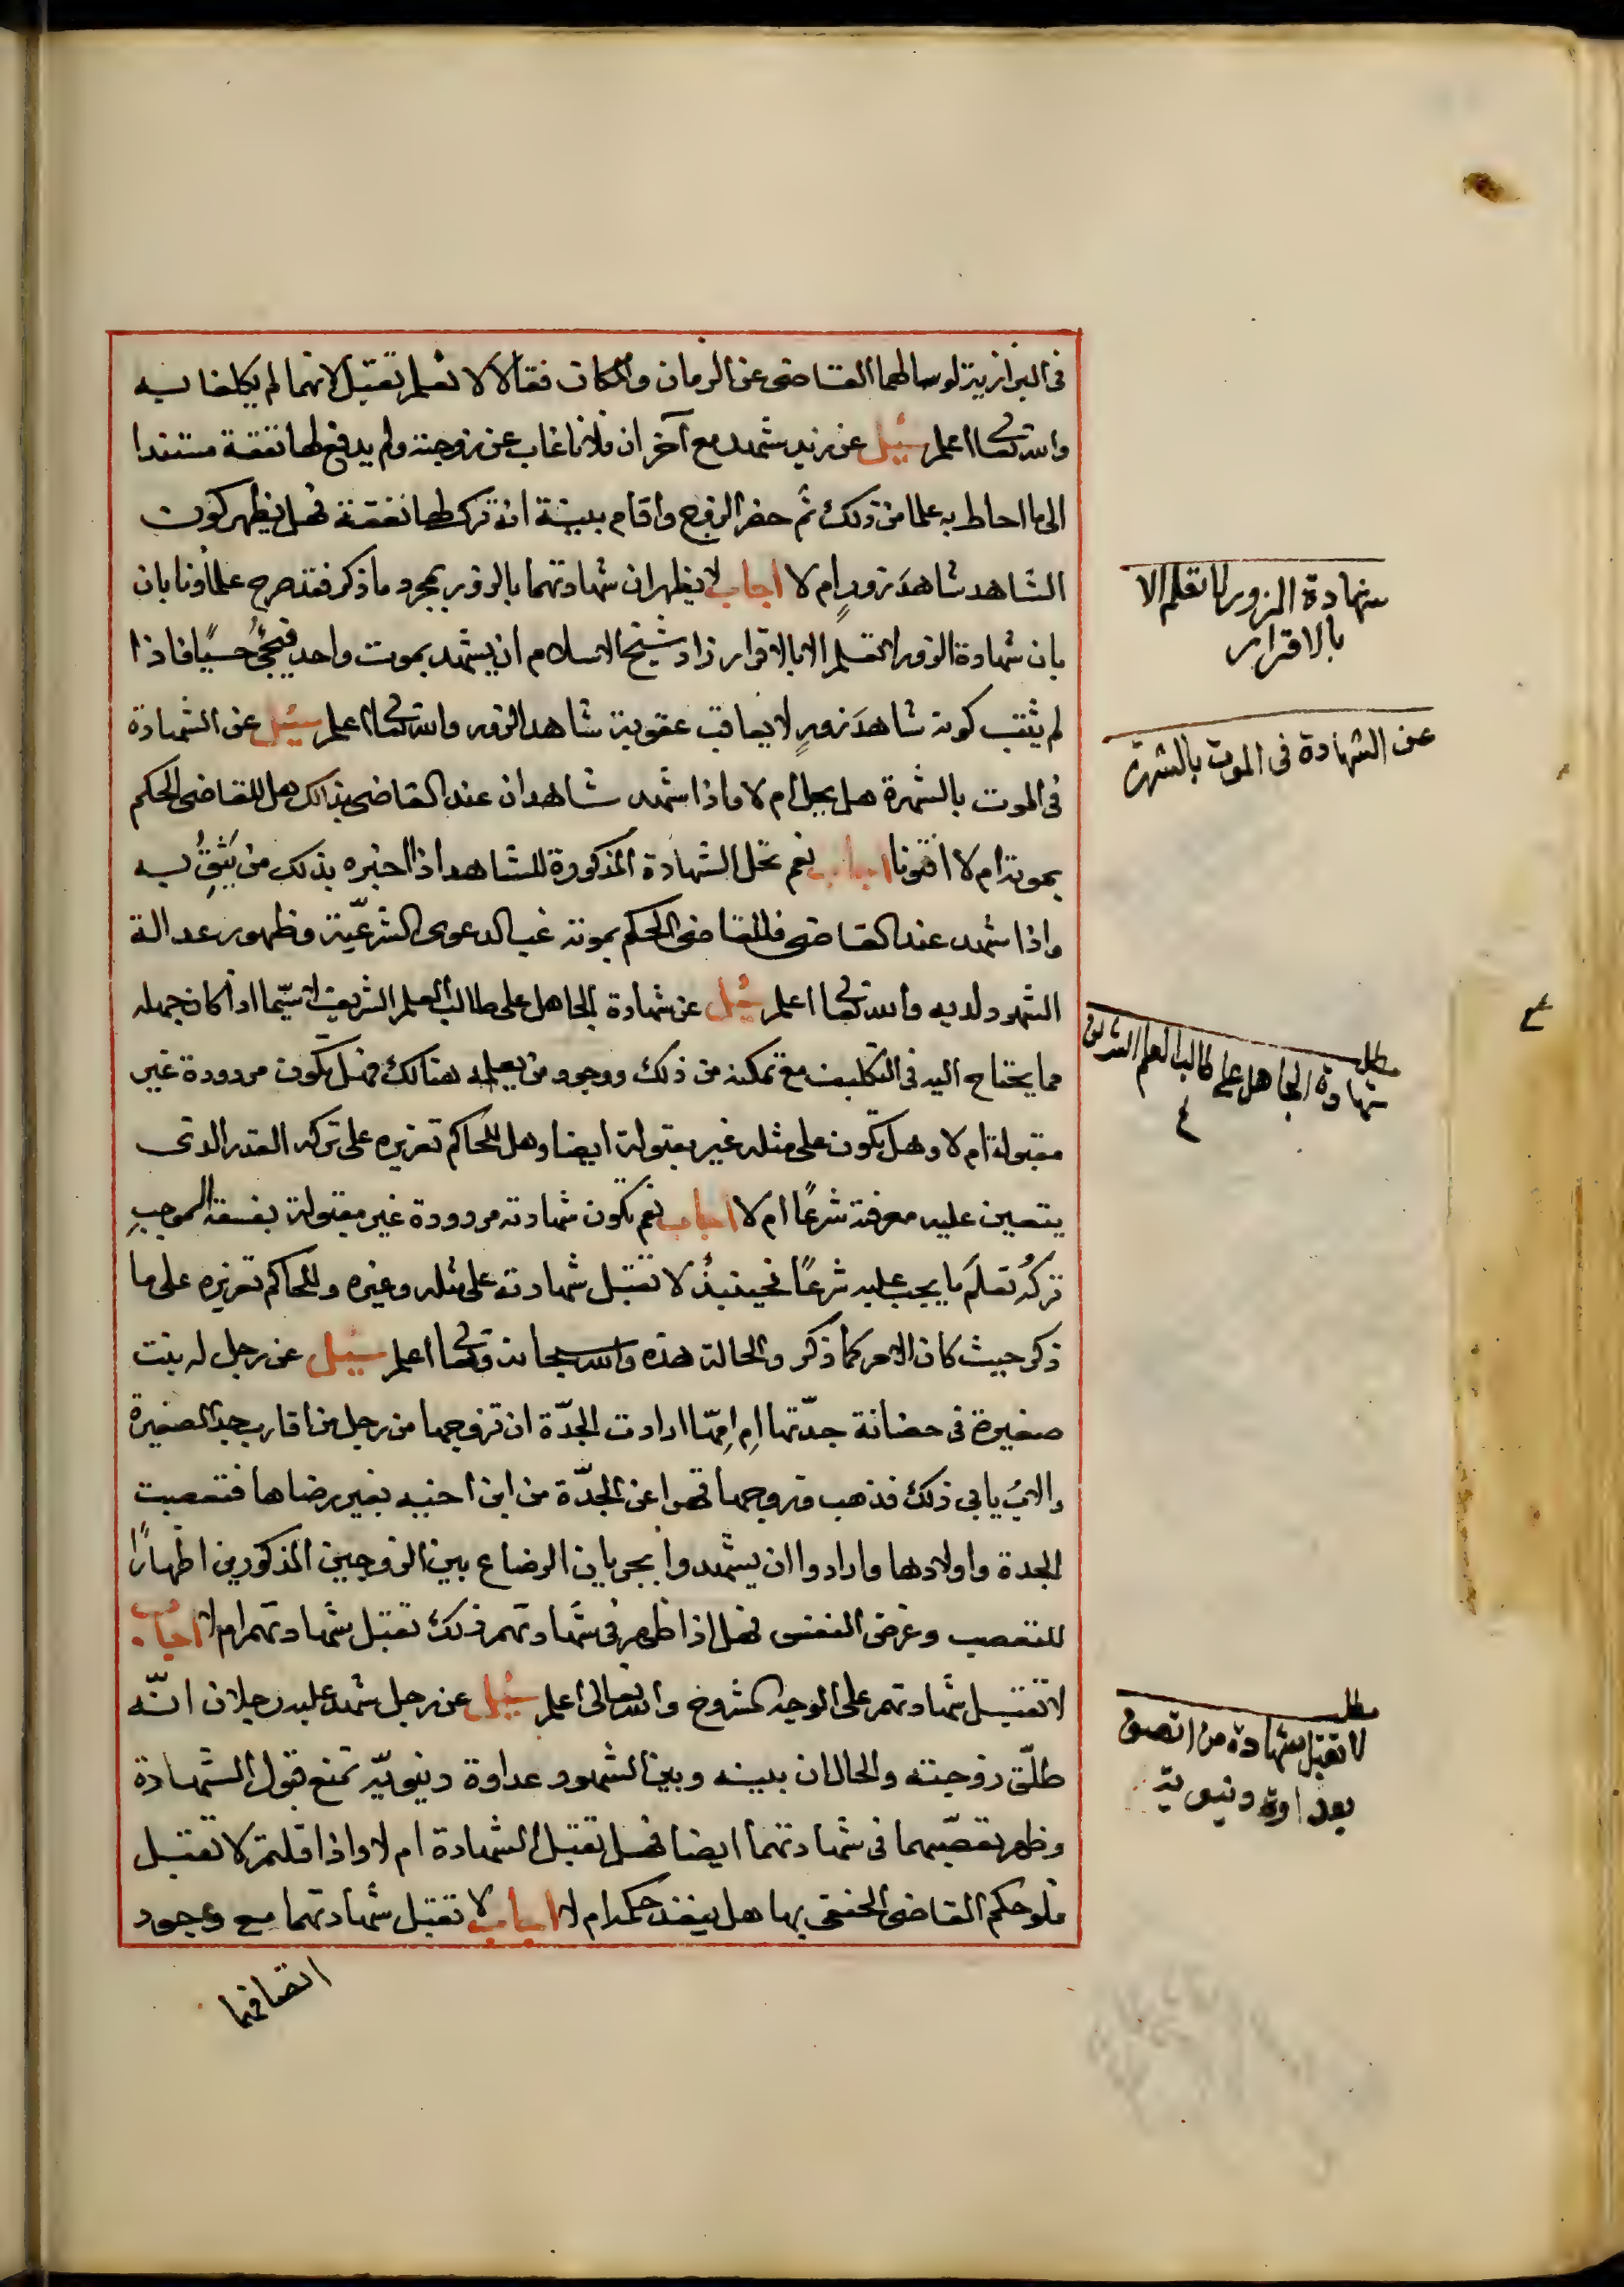 فى البزازية لو سالهما القاضى عن الزمان والمكان فقالا لا نعلم تقبل لانهما لم يكلفا به
والله تعالى اعلم سئيل عن زيد شهد مع آخر ان فلانا غاب عن زوجته ولم يدفع لها نفقة مستندا
الى ما احاط به علما من ذلك ثم حضر الزوج واقام بينة انه ترك لها نفقة فهل يظهر كون
الشاهد شاهدَ زورٍ ام لا اجاب لا يظهر ان شهادتهما بالزور بمجرد ما ذكر فقد صرح علماؤنا بان
بان شهادة الزور لا تعلم الا بالاقرار زاد شيخ الاسلام ان يشهد بموت واحد فيجئُ حيًا فاذا
لم يثبت كونه شاهدَ زورٍ لا يعاقب عقوبة شاهد الزور والله تعالى اعلم سئيل عن الشهادة
فى الموت بالشهرة هل يحل ام لا واذا شهد شاهدان عند القاضى بذلك هل للقاضى الحكم
بموته ام لا افتونا اجاب نعم تحل الشهادة المذكورة للشاهد اذا اخبره بذلك من يَثِقُ به
واذا شهد عند القاضى فللقاضى الحكم بموته غب الدعوى الشرعيّة وظهور عدالة
الشهود لديه والله تعالى اعلم سئيل عن شهادة الجاهل على طالب العلم الشريف لا سيّما اذا كان جهله
مما يحتاج اليه فى التكليف مع تمكنه من ذلك ووجود من يعلمه هنالك فهل تكون مردودة غير
مقبولة ام لا وهل تكون على مثله غير مقبولة ايضا وهل للحاكم تعزيره على تركه القدر الذى
يتعين عليه معرفته شرعًا ام لا اجاب نعم تكون شهادته مردودة غير مقبولة بفسقه الموجبِ
تركُه تعلمَ ما يجب عليه شرعًا فحينئذٍ لا تقبل شهادته على مثله وغيره وللحاكم تعزيره على ما
ذكر حيث كان الامر كما ذكر والحالة هذه والله سبحانه وتعالى اعلم سئيل عن رجل له بنت
صغيرة فى حضانة جدّتها امِ امِّها ارادت الجدّة ان تزوجها من رجل من اقارب جد الصغيرة
والابُ يابى ذلك فذهب وزوجها قهرا عن الجدّة من ابن اخيه بغير رضاها فتعصبت
الجدة واولادها وارادوا ان يشهدوا بجريان الرضاع بين الزوجين المذكورين اظهارًا
للتعصب وغرض النفس فهل اذا ظهر فى شهادتهم ذلك تقبل شهادتهم ام لا اجاب
لا تقبل شهادتهم على الوجه المشروح والله تعالى اعلم سئيل عن رجل شهد عليه رجلان انّه
طلّق زوجته والحال ان بينه وبين الشهود عداوة دنيويّة تمنع قبول الشهادة
وظهر تعصّبهما فى شهادتهما ايضا فهل تقبل الشهادة ام لا واذا قلتم لا تقبل
فلو حكم القاضى الحنفى بها هل ينفذ حكمه ام لا اجاب لا تقبل شهادتهما مع وجود
اتصافهما
شهادة الزور لا تعلم الا
بالاقرار
عن الشهادة فى الموت بالشهرة
مطلب
شهادة الجاهل على طالب العلم الشريف
ع
مطلب
لا تقبل شهادة من اتصف
بعداوة دنيوية